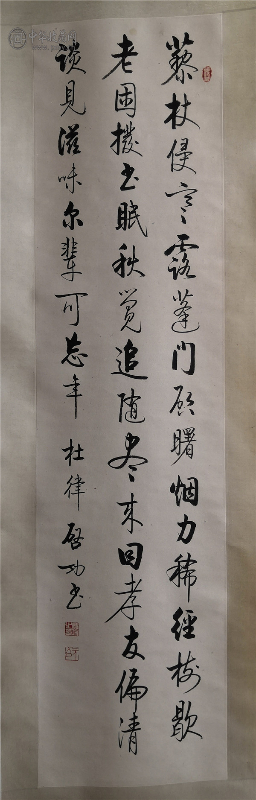 藜杖侵寒露蓬门启曙烟力稀經樹歇
老困撥书眠秋覺追随尽来因孝友偏清
談見滋味尔輩可忘年 杜律 啓功书